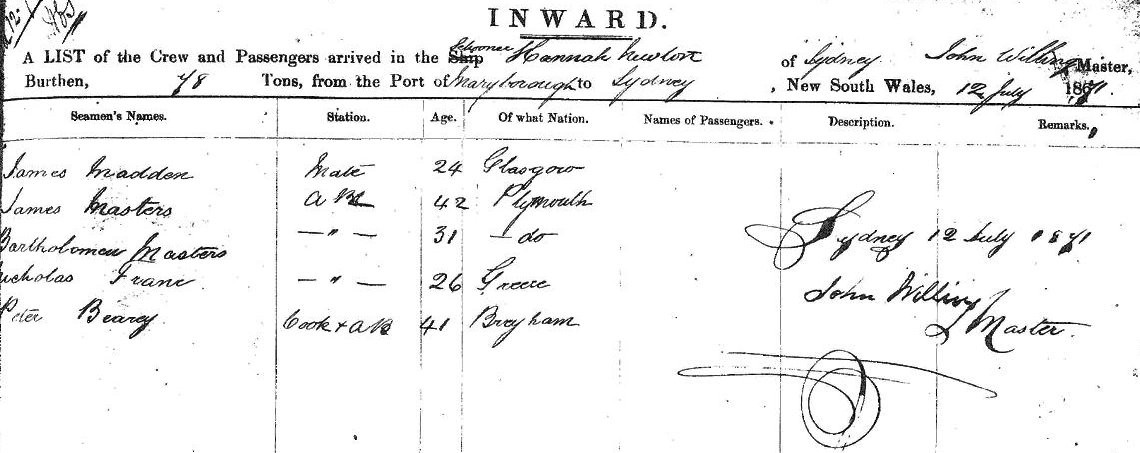 INWARD.
A LIST of the Crew and Passengers arrived in the Ship Schooner Hannah Newton of Sydney John Willing Master,
Burthen, 78 Tons, from the Port of Maryborough to Sydney, New South Wales, 12 July 1871.
Seamen's Names. Station. Age. Of what Nation. Names of Passengers. Description. Remarks.
James Madden Mate 24 Glasgow
James Masters A B 42 Plymouth
Bartholomew Masters — " — 31 — do
Sydney 12 July 1871
Nicholas Franc — " — 26 Greece
John Willing
Master.
Peter Bearey Cook + A B 41 Breyham